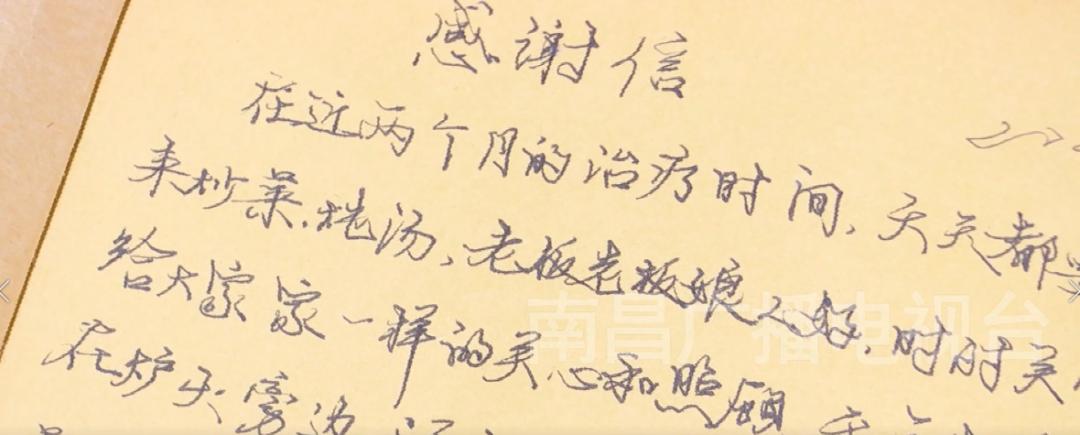 感谢信
在近两个月的治疗时间,天天都要
来炒菜.炖汤、老板老板娘人好,时时关
给大家家一样的关心和照顾
在炉火旁边
南昌广播电视台